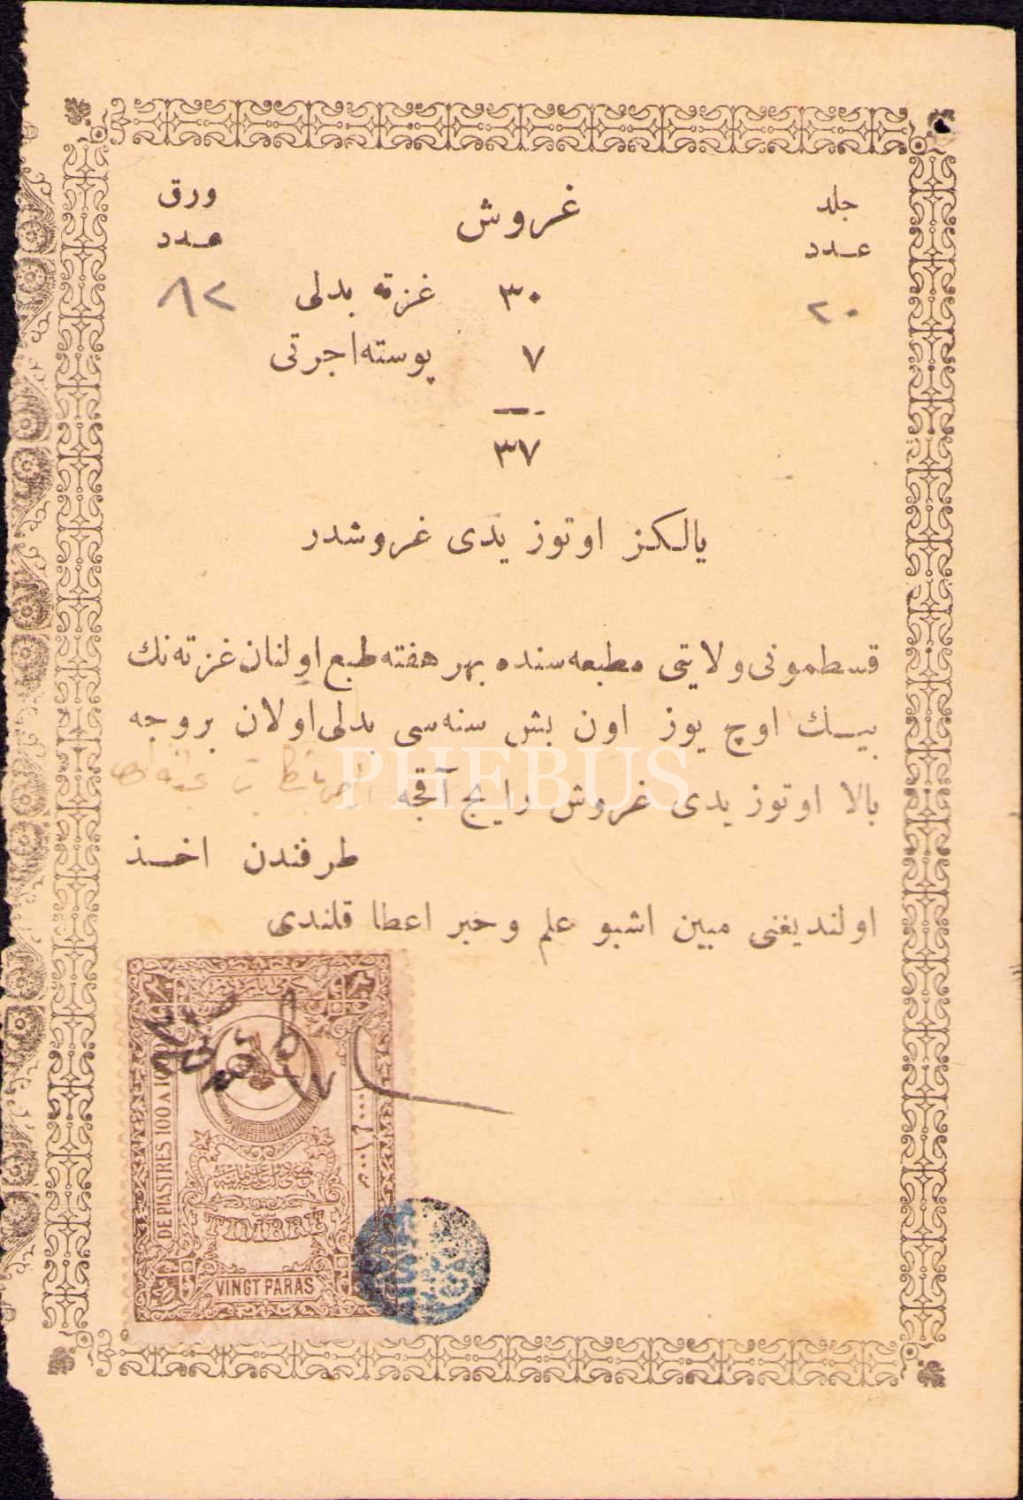 جلد
عدد
٢٠
غروش
ورق
عدد
٨٢
٣٠ غزته بدلی
٧ پوسته اجرتی
٣٧
یالکز اوتوز یدی غروشدر
قسطمونی ولایتی مطبعه سنده بهر هفته طبع اولنان غزته نك
بیك اوچ یوز اون بش سنه سی بدلی اولان بروجه
بالا اوتوز یدی غروش رایج آقچه
طرفندن اخذ
اولندیغنی مبین اشبو علم و خبر اعطا قلندی
DE PIASTRES 100 A
TIMBRE
VINGT PARAS
PHEBUS